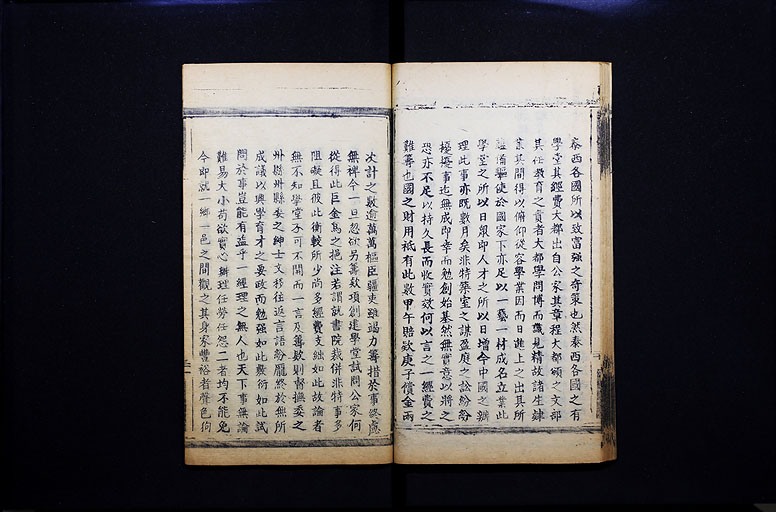 泰西各國所以致富强之奇策也然泰西各國之有
學堂其經費大都出自公家其章程大都頒之文部
其任教育之責者大都學問博而識見精故諸生肄
業其間得以俯仰從容學業因而日進上之出其所
學以國家下亦足以一藝一材成名立業此
學堂之所以日眾即人才之所以日增今中國之辦
理此事亦既數月矣非特築室之謀盈庭之訟紛紛
擾擾事迄無成即幸而勉創始基然無實意以將之
恐亦不足以持久長而收實效何以言之一經費之
難籌也國之財用祗有此數甲午賠欵庚子償金兩
次計之數逾萬萬樞臣疆吏雖竭力籌措於事終處
無裨今一旦忽欲另籌欵項創建學堂試問公家何
從得此巨金為之挹注若謂就書院裁併非特事多
阻礙且彼此衡較所少尚多經費支絀如此故論者
無不知學堂不可不開而一言及籌欵則督撫委之
州縣州縣委之紳士文移往返言語紛龐終於無所
成議以興學育才之要政而勉强如此敷衍如此試
問於事豈能有益乎一經理之無人也天下事無論
難易大小苟欲實心辦理任勞任怨二者均不能免
今即就一鄉一邑之間觀之其身家豐裕者聲色狗